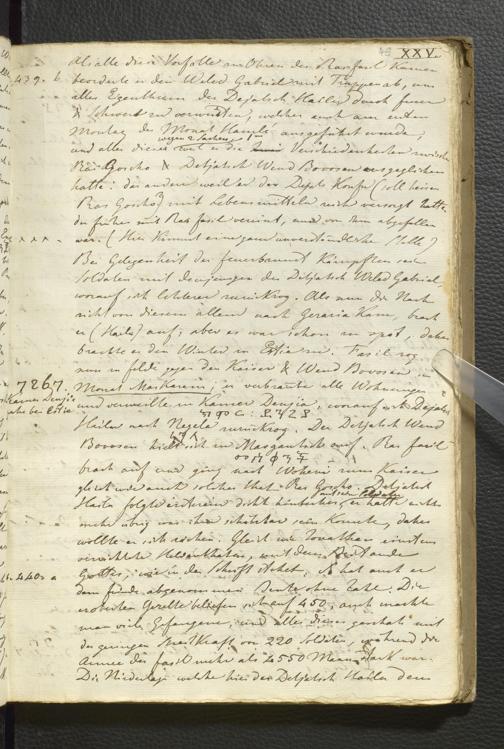 49 XXV.
Als alle diese Vorfälle zu Ohren des Ras Fasil kamen
439. b. beorderte er den Weled Gabriel mit Truppen ab, um
alles Eigenthum des Dejatsch Hailu durch Feuer
& Schwert zu verwüsten, welches auch am ersten
Montag des Monat Hamle ausgeführt wurde;
und alles dieses weil er die Verschiedenheiten zwischen
Ras Goscho & Detjatsch Wend Bowosen ausgeglichen
hatte; das andere weil er den Dejats Konfu (soll heissen
Ras Goscho) mit Lebensmitteln versorgt hatte,
der früher mit Ras Fasil vereint, und von ihm abgefallen
x x x war. (Hier kommt eine ganz unverständliche Stelle)
Bei Gelegenheit der Feuerbrunst kämpften seine
Soldaten mit denjenigen des Detjatsch Weled Gabriel
worauf sich letzterer zurückzog. Als nun die Nachricht
von diesem allem nach kam, brach
er (Hailu) auf; aber es war schon zu spät, daher
brachte er den Winter in Estia zu. Fasil zog
nun zu Felde gegen den Kaiser & Wend Bowosen im
7267. Monat Maskarem; er verbrannte alle Wohnungen
und verweilte in Kamer Denjia, worauf sich Dejatsch
Hailu nach Negela zurückzog. Der Detjatsch Wend
Bowosen hielt sich in auf. Ras Fasil
brach auf und ging nach Wohni zum Kaiser
gleich wie auch solches that Ras Goscho. Detjatsch
Hailu folgte ersterem dicht hinterher, er hatte nichts
mehr übrig was ihm schätzbar sein konnte, daher
wollte er sich rächen. Gleich wie Jonathan einstens
verrichtete Heldenthaten, mit dem Beistande
440. a Gottes, wie in der Schrift stehet, so hat auch er
dem Feinde abgenommen Beute ohne Zahl. Die
eroberten Gewehre beliefen sich auf 450, auch machte
man viele Gefangene, und alles dieses geschah mit
der geringen Streitkraft von 220 Soldaten, während die
Armee des Fasil mehr als 4550 Mann stark war.
Die Niederlage welche hier der Detjatsch Hailu dem